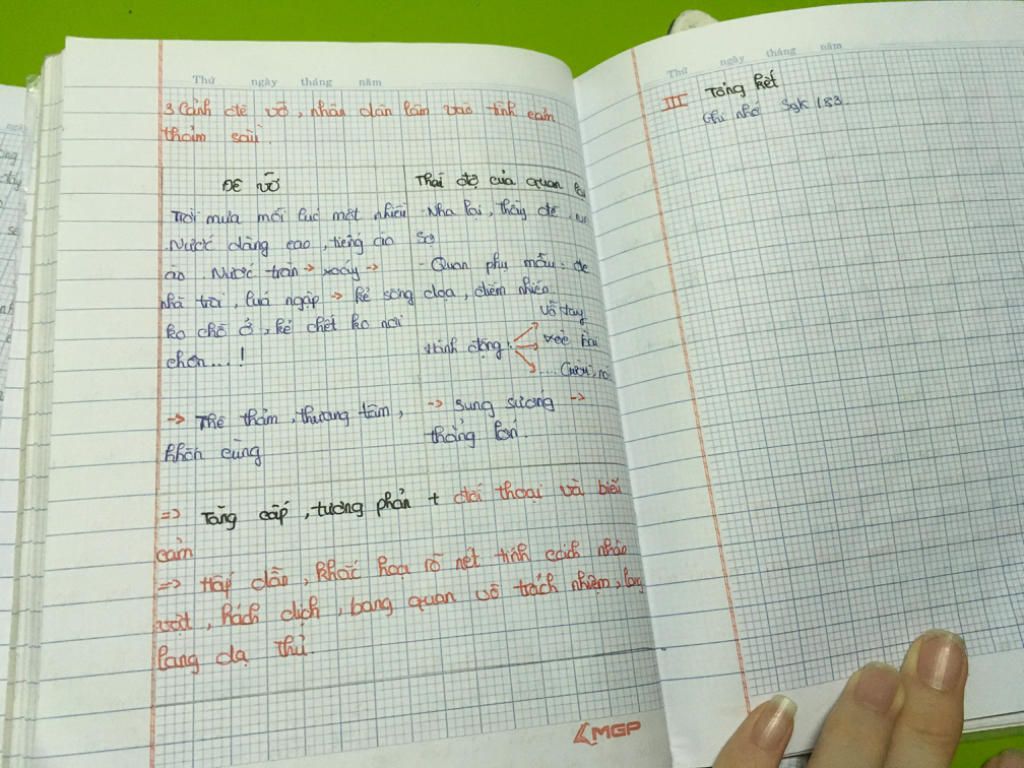 Thứ ngày tháng năm
3 Cảnh đê vỡ, nhân dân lâm vào tình cảm
thảm sầu.
Đê vỡ
Trời mưa mỗi lúc một nhiều
Nước dâng cao, tiếng ào
ào. Nước tràn → xoáy →
nhà trôi, lúa ngập → kẻ sống
ko chỗ ở, kẻ chết ko nơi
chôn...!
→ Thê thảm, thương tâm,
khốn cùng
Thái độ của quan lại
- Nha lại, thầy đề
Sợ
- Quan phụ mẫu: đe
dọa, điềm nhiên
Hành động:
Vỗ tay
.... Cười,
→ Sung sướng →
thắng lớn.
=> Tăng cấp, tương phản + đối thoại và biểu
cảm
=> Hấp dẫn, khắc hoạ rõ nét tính cách nhân
vật, hách dịch, bang quan vô trách nhiệm, lòng
lang dạ thú.
MGP
Thứ ngày tháng năm
III Tổng kết
Ghi nhớ Sgk 183